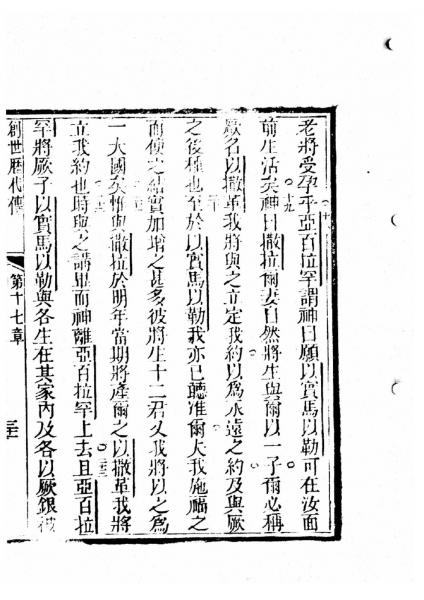 老將受孕乎亞百拉罕謂神曰願以實馬以勒可在汝面
前生活矣神曰撒拉爾妻自然將生與爾以一子爾必稱
厥名以撒革我將與之立定我約以為永遠之約及與厥
之後種也至於以實馬以勒我亦已聽准爾夫我施福之
而使之結實加增之甚多彼將生十二君又我將以之為
一大國矣惟與撒拉於明年當期將產爾之以撒革我將
立我約也時與之講畢而神離亞百拉罕上去且亞百拉
罕將厥子以實馬以勒與各生在其家內及各以厥銀被
創世歷代傳 第十七章